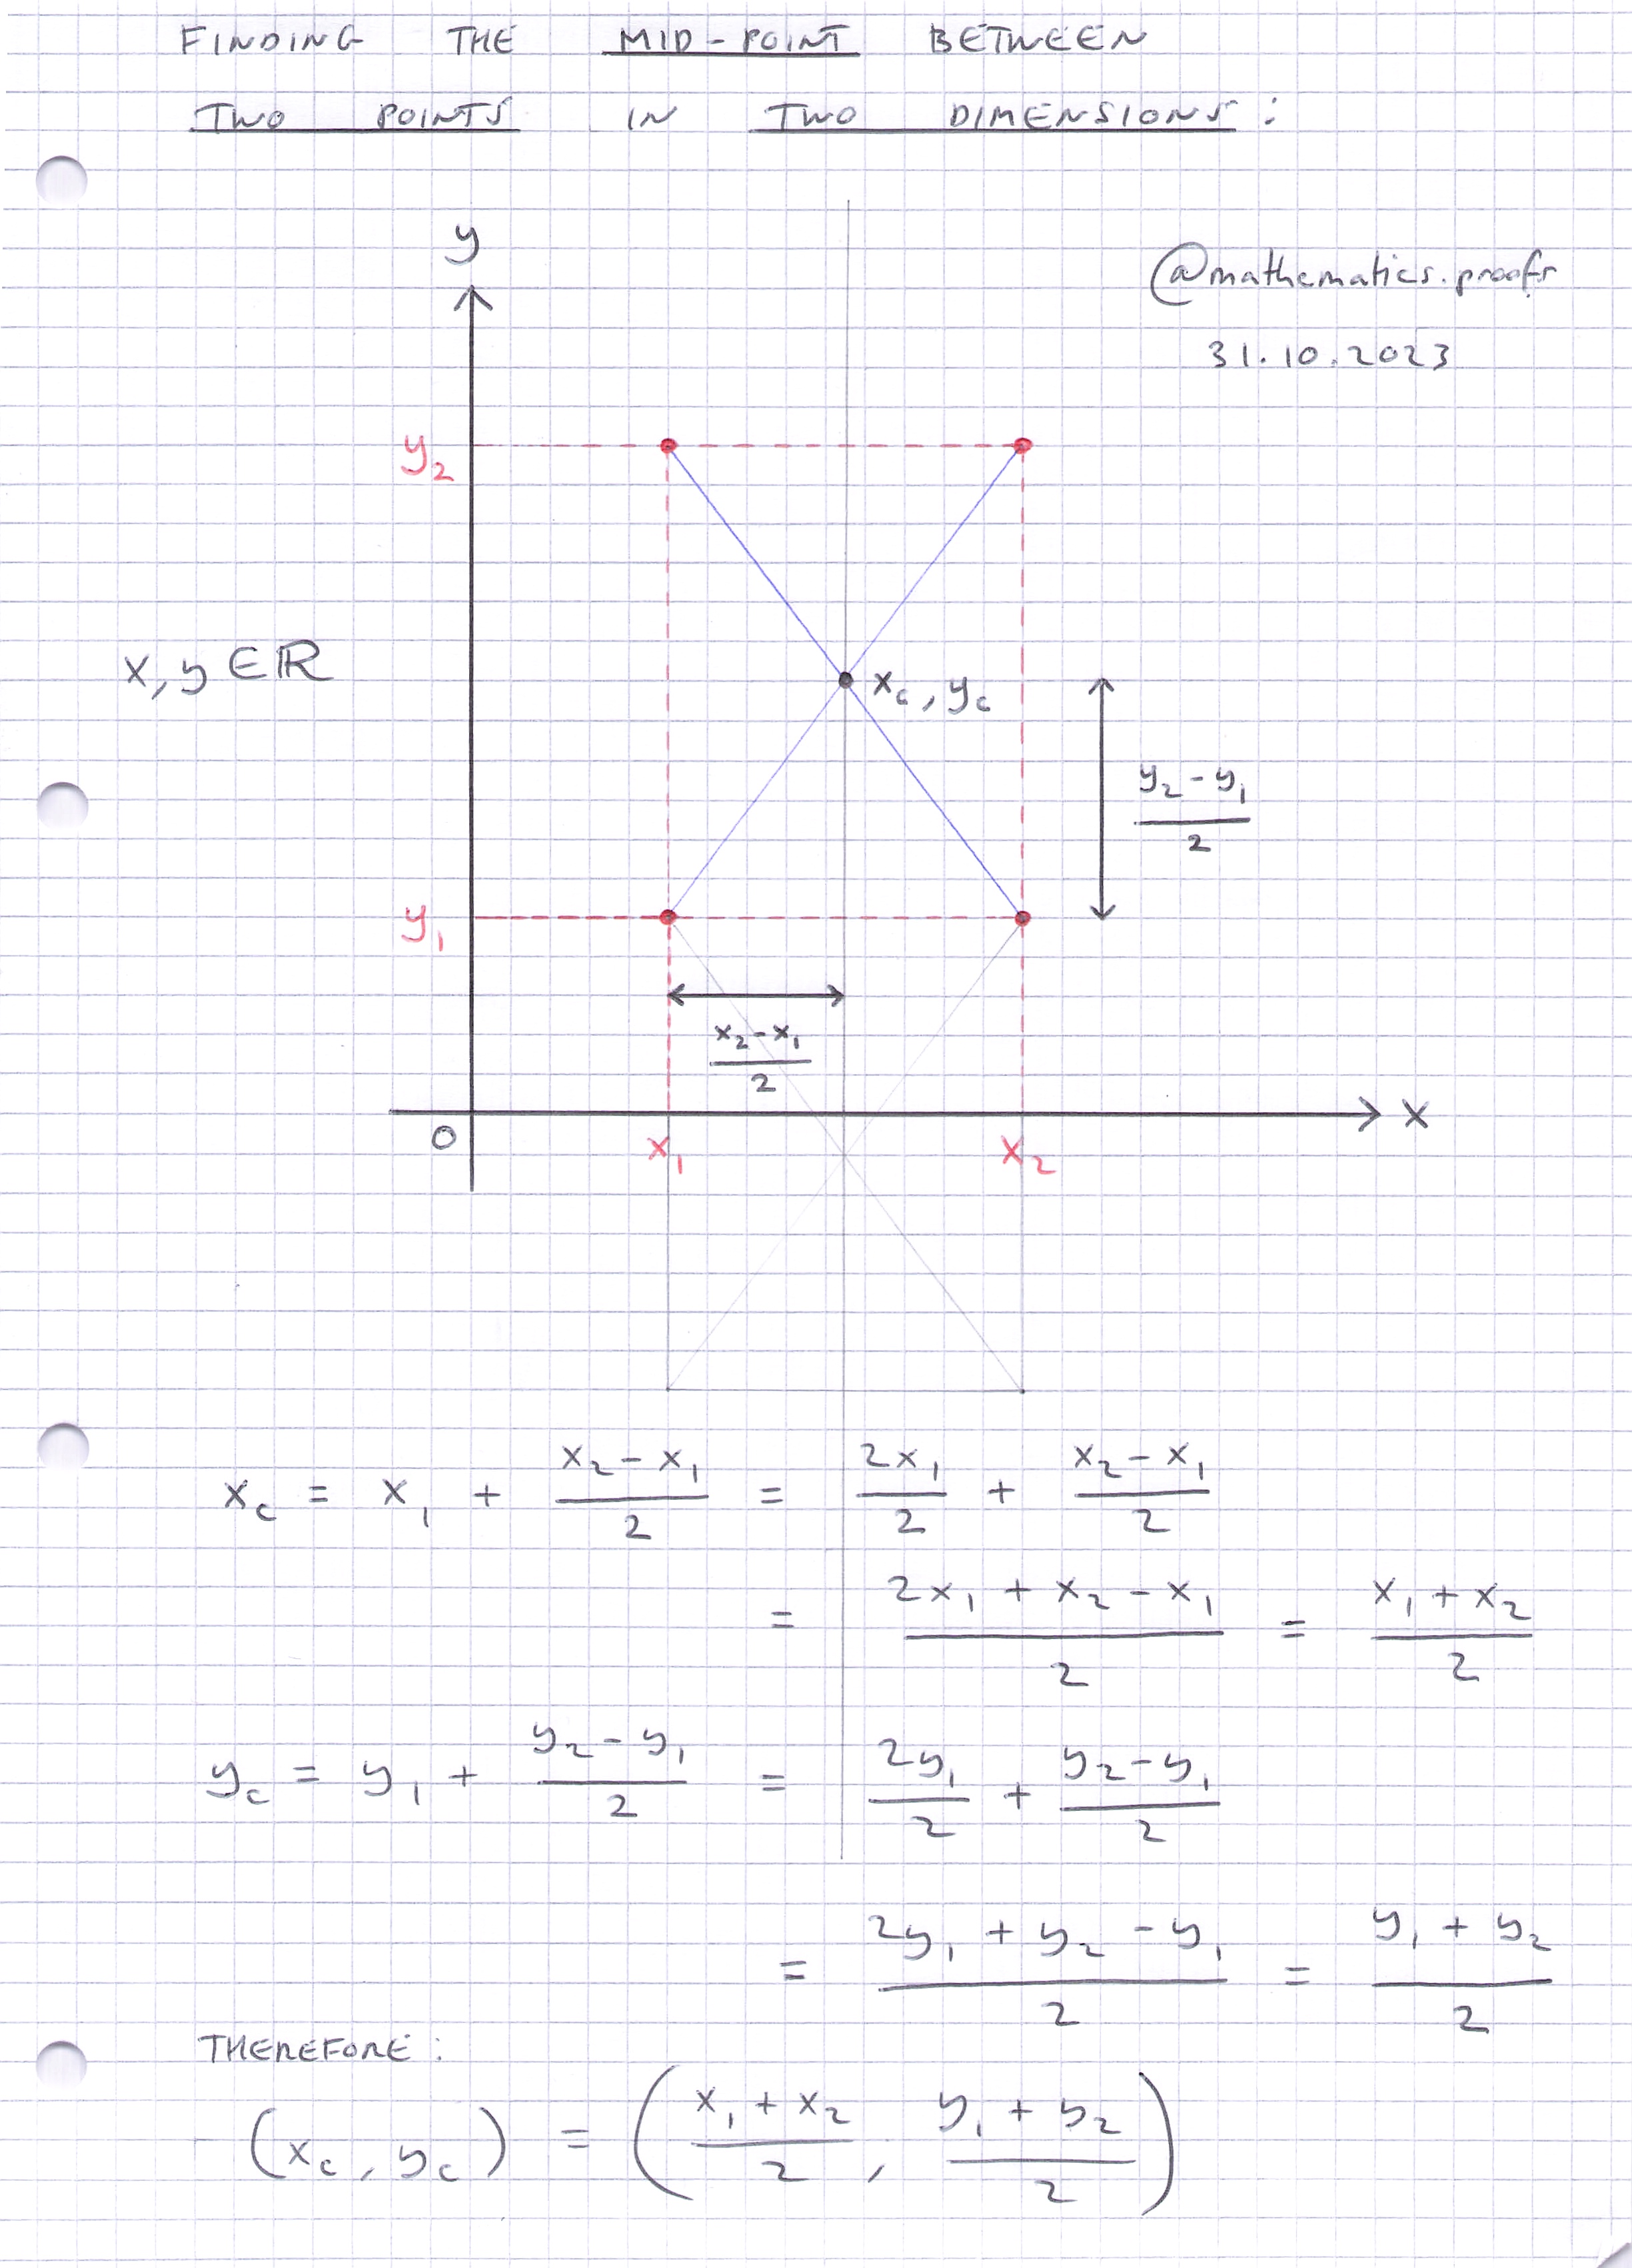 FINDING THE MID-POINT BETWEEN
TWO POINTS IN TWO DIMENSIONS:
y
@mathematics.proofs
31.10.2023
y₂
x, y ∈ ℝ
x_c, y_c
(y₂ - y₁)/2
y₁
(x₂ - x₁)/2
0 x₁ x₂ x
x_c = x₁ + (x₂ - x₁)/2 = 2x₁/2 + (x₂ - x₁)/2
= (2x₁ + x₂ - x₁)/2 = (x₁ + x₂)/2
y_c = y₁ + (y₂ - y₁)/2 = 2y₁/2 + (y₂ - y₁)/2
= (2y₁ + y₂ - y₁)/2 = (y₁ + y₂)/2
THEREFORE:
(x_c, y_c) = ((x₁ + x₂)/2, (y₁ + y₂)/2)